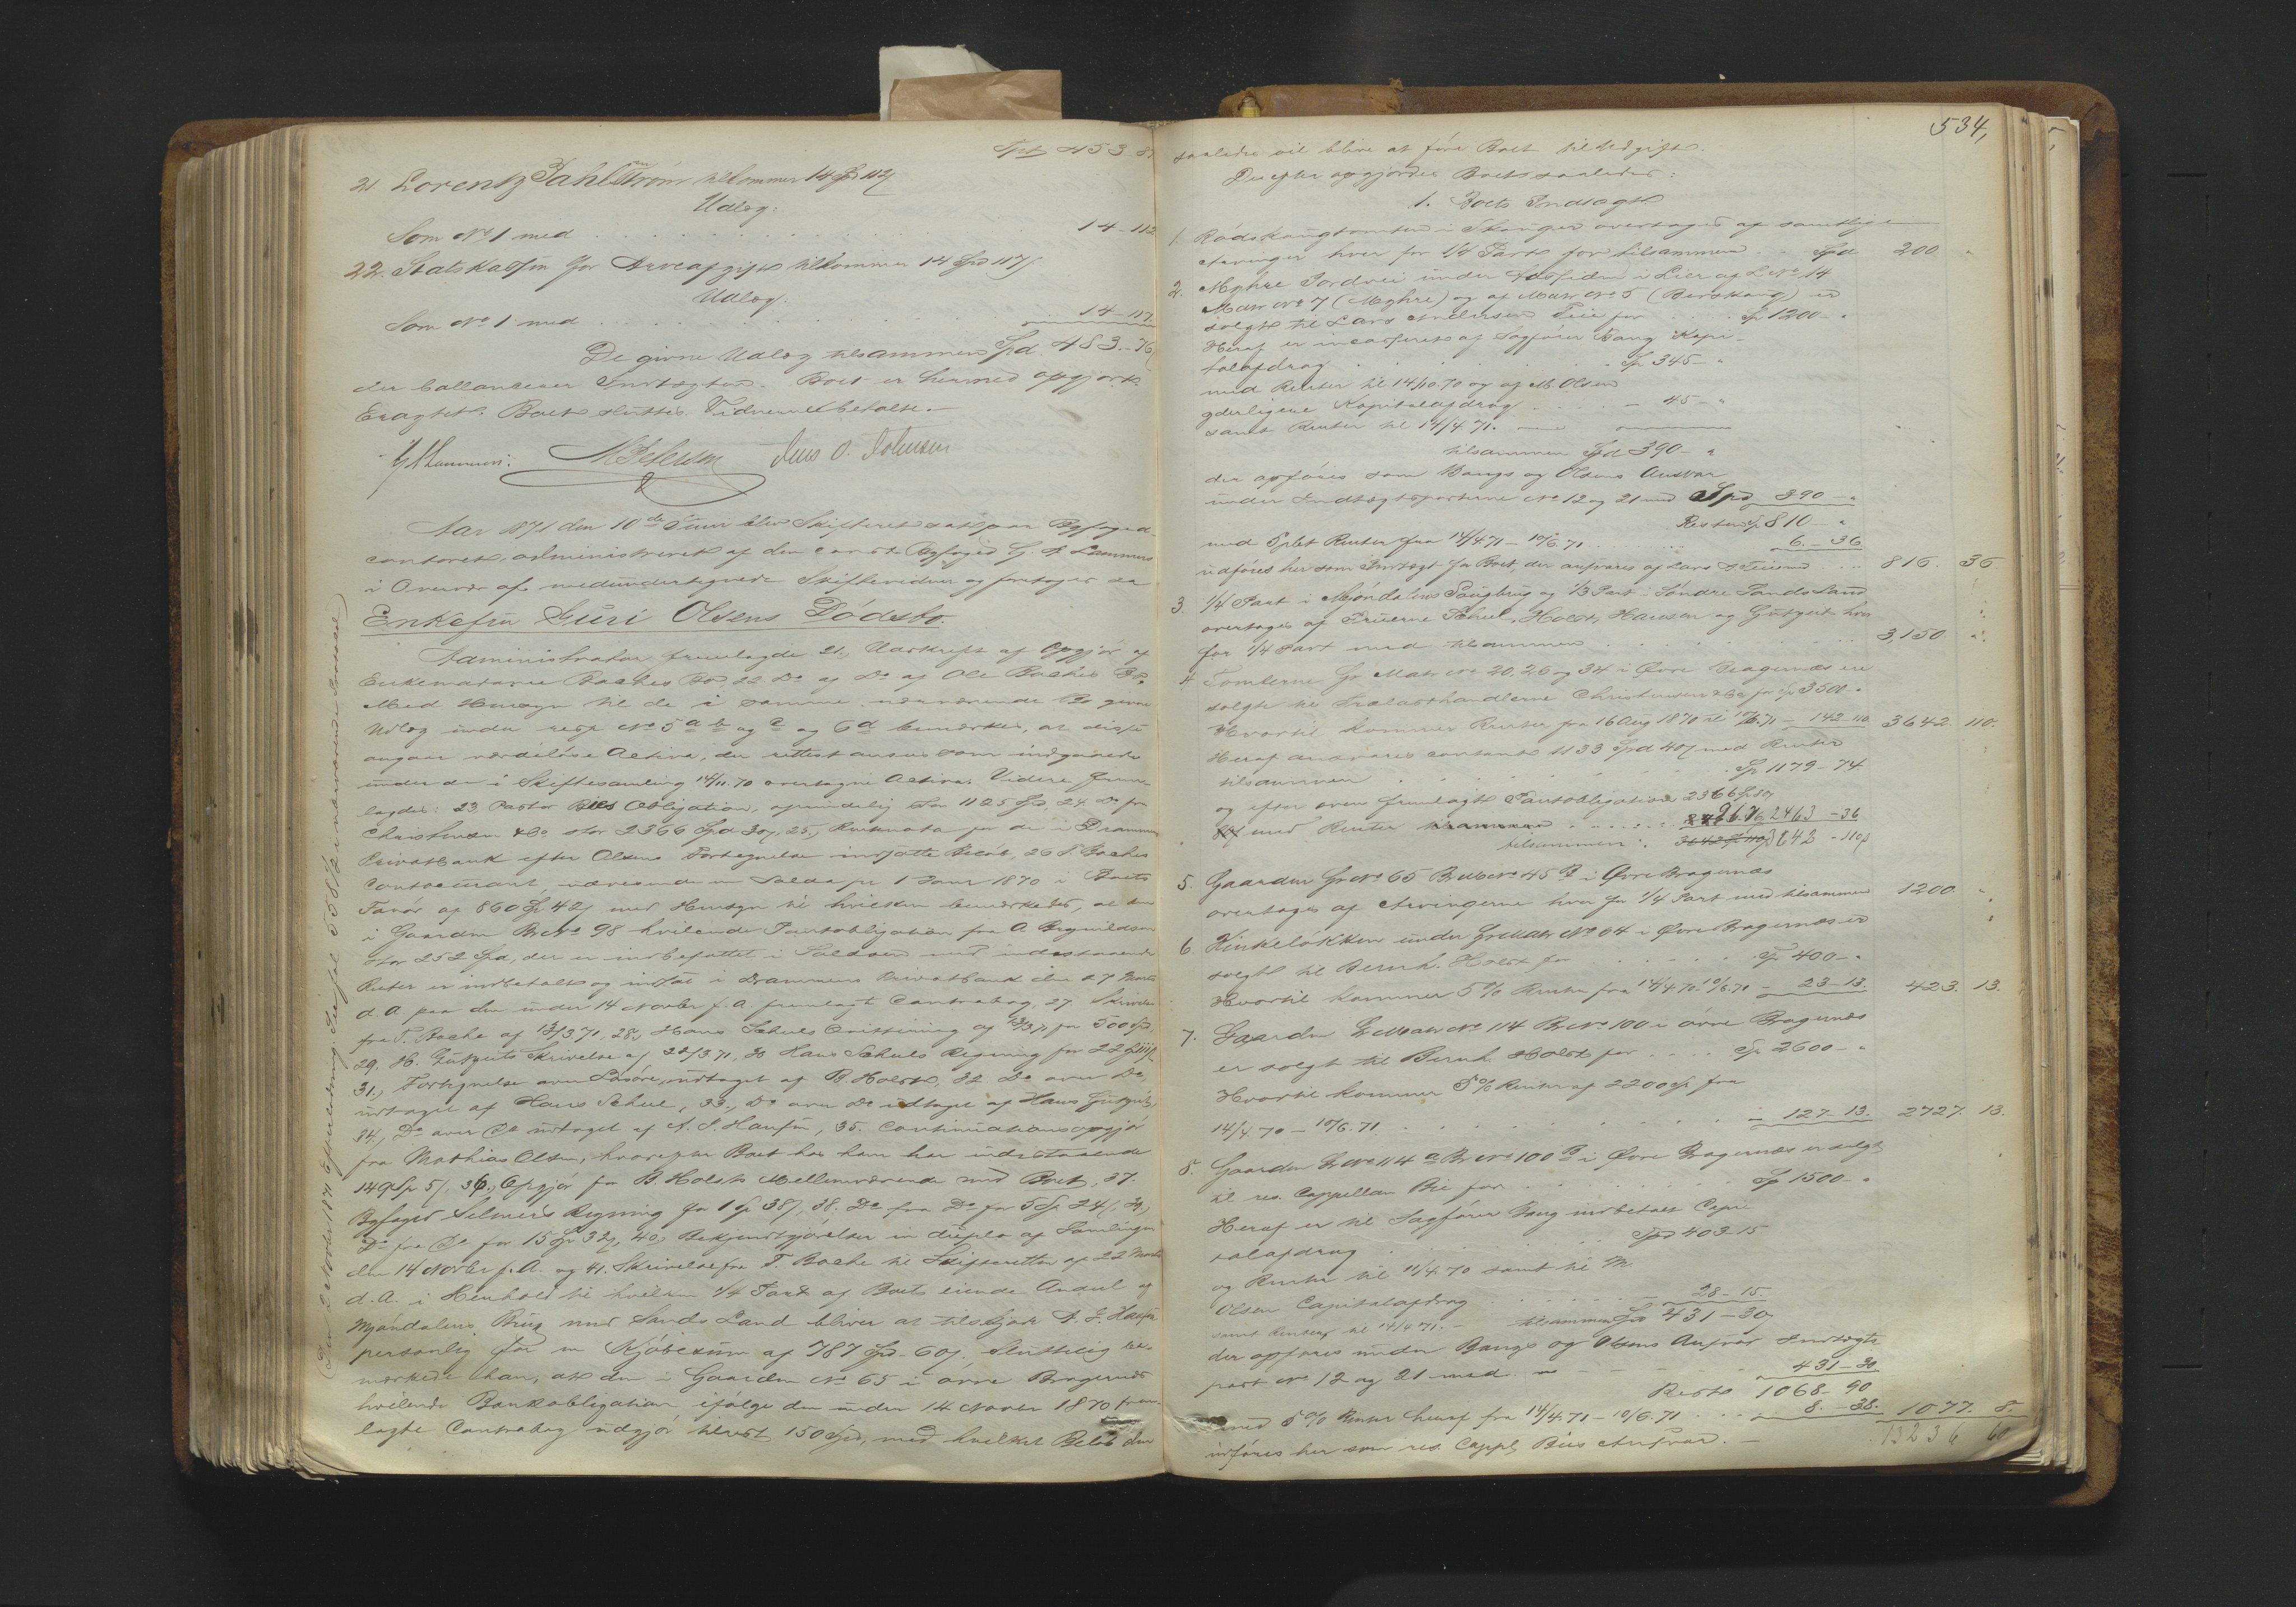 Spd 453-8
21. Lorentz Dahlstrøm tilkommer 14 Spd 112 ſ
Udlæg:
Som No 1 med . . . 14-112
22. Statskassen for Arveafgift tilkommer 14 Spd 117 ſ.
Udlæg:
Som No 1 med . . . 14-117.
De givne Udlæg tilsammen Spd 483.-76
der ballancerer Indtægten. Boet er hermed opgjort.
Eragtet: Boet sluttes. Vidnerne betalte.-
Jens O. Johnsen
Aar 1871 den 10de Juni blev Skifteret sat paa Byfoged-
contoret, administreret af den const. Byfoged G. F. Lammers
i Overvær af medundertegnede Skiftevidner og foretoges da
Enkefru Guri Olsens Dødsbo.
Administrator fremlagde 21, Udskrift af Opgjør af
Enkemadame Baches Bo, 22 Do af Do af Ole Baches Bo.
Med Hensyn til de i samme nærværende Bo givne
Udlæg under resp No 5 a b og c og 6 d bemærkes, at disse
angaar værdiløse Activa, der rettest ansees som indgaaende
under de i Skiftesamling 14/11.70 overtagne Activa. Videre frem-
lagdes: 23, Pastor Bies Obligation, oprindelig stor 1125 Spd, 24. Do fra
Christensen & Co stor 2366 Spd 30 ſ, 25, Rentenota for de i Drammens
Privatbank efter Olsens Fortegnelse indsatte Beløb, 26 T. Baches
Contocourant, udvisende en Saldo pr 1 Janr 1870 i Boets
Favør af 860 Sp 42 ſ med Hensyn til hvilken bemærkedes, at den
i Gaarden Br No 98 hvilende Pantobligation fra A. Brynildsen
stor 252 Spd, der er indbefattet i Saldoen med indestaaende
Renter er indbetalt og indsat i Drammens Privatbank den 27 Marts
d. A. paa den under 14 Novbr f. A. fremlagte Contrabog, 27. Skrivelse
fra T. Bache af 13/3 71, 28, Hans Schuls Qvittering af 13/3 71 for 500 Sp.
29. H. Gutzeits Skrivelse af 22/3.71, 30 Hans Schuls Regning for 22
31., Fortegnelse over Løsøre, udtaget af B. Holst, 32 Do over Do,
udtaget af Hans Schul, 33, Do over Do udtaget af Hans Gutzeit,
34, Do over Do udtaget af A. S. Hansen, 35. Continuationsopgjør
fra Mathias Olsen, hvorefter Boet hos ham har indestaaende
149 Sp 5 ſ, 36, Opgjør for B. Holsts Mellemværende med Boet, 37.
Byfoged Selmers Regning for 1 Sp 38 ſ, 38. Do fra Do for 5 Sp 24 ſ, 39,
Do fra Do for 15 Sp 32 ſ, 40, Bekjendtgjørelser in duplo af Samlingen
den 14 Novbr f. A. og 41. Skrivelse fra T. Bache til Skifteretten af 22 Marts
d. A. i Henhold til hvilken 1/4 Part af Boets eiende Andel af
Mjøndalens Brug med Sands Land bliver at tilskjøde A. S. Hansen
personlig for en Kjøbesum af 787 Spd-60 ſ. Sluttelig be-
mærkede han, at den i Gaarden No 65 i øvre Bragernæs
hvilende Bankobligation ifølge den under 14 Novbr 1870 frem-
lagte Contrabog udgjør tilrest 150 Spd, med hvilket Beløb den
(Den 2 Novbr 1871 Efterudlodning. See fol. 558 nærværende Protocol)
534,
saaledes vil blive at føre Boet til Udgift.
Derefter opgjordes Boet saaledes:
1. Boets Indtægt
1. Rødskougtomten i Stranger overtages af samtlige
Arvinger hver for 1/4 Part for tilsammen . . Spd 200 "
2. Myhre Jordvei under Fosseiden i Lier af L No 14
Matr No 7 (Myhre) og af Matr No 5 (Berskoug) er
solgt til Lars Andersen Teie for . . Sp 1200- "
Heraf er incasseret af Sagfører Bang Kapi-
talafdrag . . . Sp 345- "
med Renter til 14/10.70 og af M. Olsen
yderligere Kapitalafdrag . . . - 45- "
samt Renter til 14/4.71.
tilsammen Spd 390- "
der opføres som Bangs og Olsens Ansvar
under Indtægtsposterne No 12 og 21 med Spd 390- "
Resten Sp 810- "
med 5 pCt Renter fra 14/4 71 - 10/6.71 . . . 6.-36
udføres her som Indtægt for Boet, der ansvares af Lars A Teiesen . . . 816. 36
3. 1/4 Part i Mjøndalens Saugbrug og 1/3 Part i Søndre Sands Land
overtages af Fruerne Schul, Holst, Hansen og Gutzeit hver
for 1/4 Part med tilsammen . . . 3,150 "
4. Tomterne Gr Matr No 20, 26 og 34 i Øvre Bragernæs ere
solgte til Trælasthandlerne Christensen & Co for Sp 3500- "
Hvortil kommer Renter fra 16 Aug 1870 til 10/6.71 - 142-110. 3642. 110.
Heraf ansvares contant 1133 Spd 40 ſ med Renter
tilsammen . . . Sp 1179-74.
og efter oven fremlagte Pantobligation 2366 Sp 80
med Renter . . . 96.76 2463-36
tilsammen . 3642-110 ſ
5. Gaarden Gr No 65 Br No 45 B i Øvre Bragernæs
overtages af Arvingerne hver for 1/4 Part med tilsammen 1200. "
6. Kinkeløkken under Gr Matr No 64 i Øvre Bragernæs er
solgt til Bernh. Holst for . . . Sp 400- "
Hvortil kommer 5% Rente fra 14/4 70-10/6.71 - 23-13. 423. 13.
7. Gaarden Gr Matr No 114 Br No 100 i øvre Bragernæs
er solgt til Bernh Holst for . . . Sp 2600- "
Hvortil kommer 5% Renter af 2200 Sp fra
14/4.70 - 10/6.71 . . . - 127-13. 2727. 13.
8. Gaarden Gr No 114 a Br No 100 B i Øvre Bragernæs er solgt
til res. Cappellan Bie for . . . Sp 1500- "
Heraf er til Sagfører Bang indbetalt Capi-
talafdrag . . . Spd 403-15
og Renter til 11/4.70 samt til M.
Olsen Capitalafdrag . . . - 28-15.
samt Renter til 14/4 71. - tilsammen Spd 431-30 ſ
der opføres under Bangs og Olsens Ansvar Indtægts-
post No 12 og 21 med - 431-30
Resto 1068-90
med 5% Rente heraf fra 14/4.71 - 10/6.71 . . . 8.-38. 1077. 8.
udføres her som res. Cappl. Bies Ansvar. -
13236 60